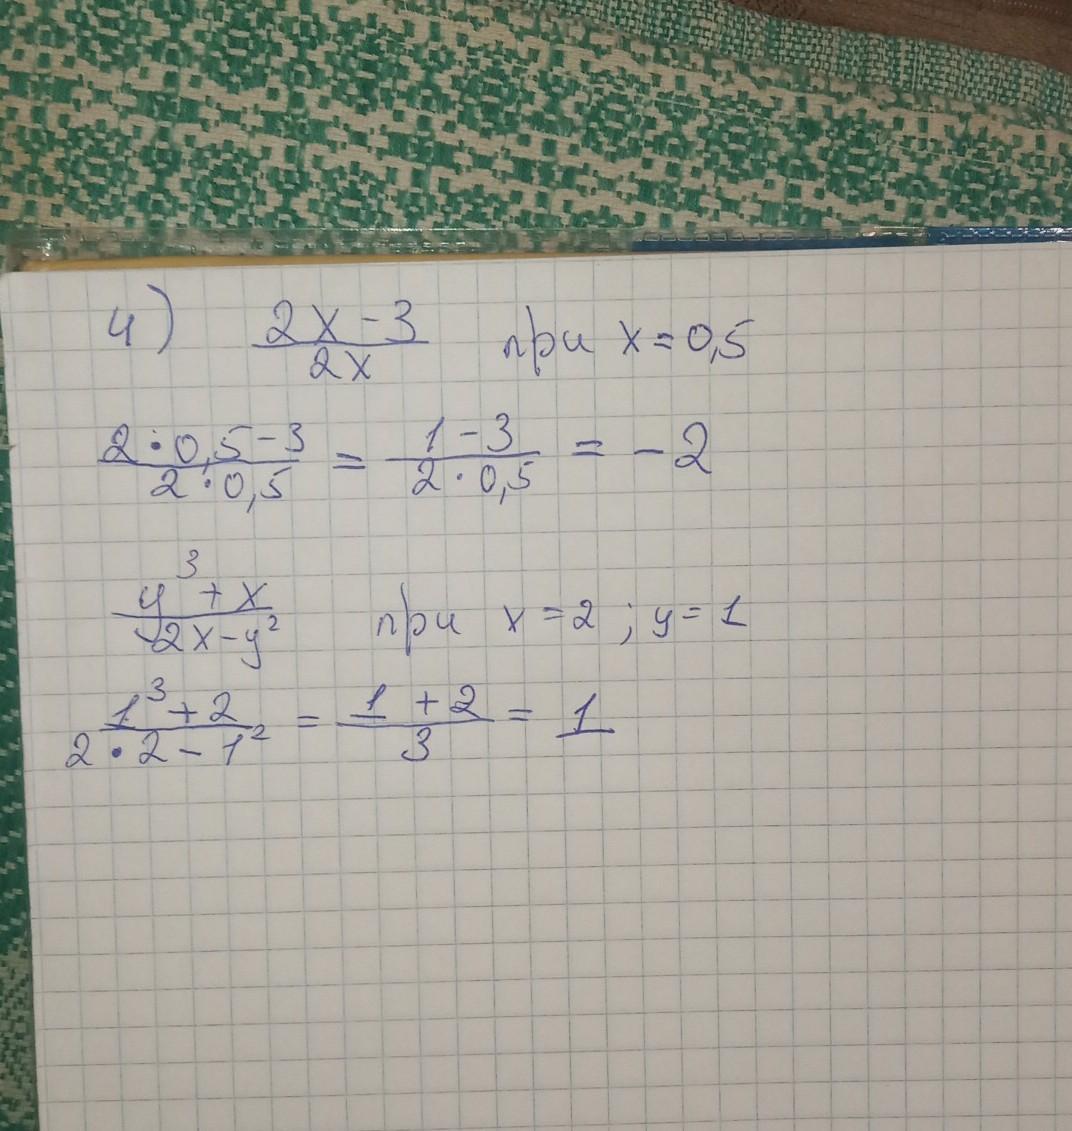 4) (2x-3)/(2x) при x=0,5
(2·0,5-3)/(2·0,5) = (1-3)/(2·0,5) = -2
(y³+x)/(2x-y²) при x=2; y=1
(1³+2)/(2·2-1²) = (1+2)/3 = 1